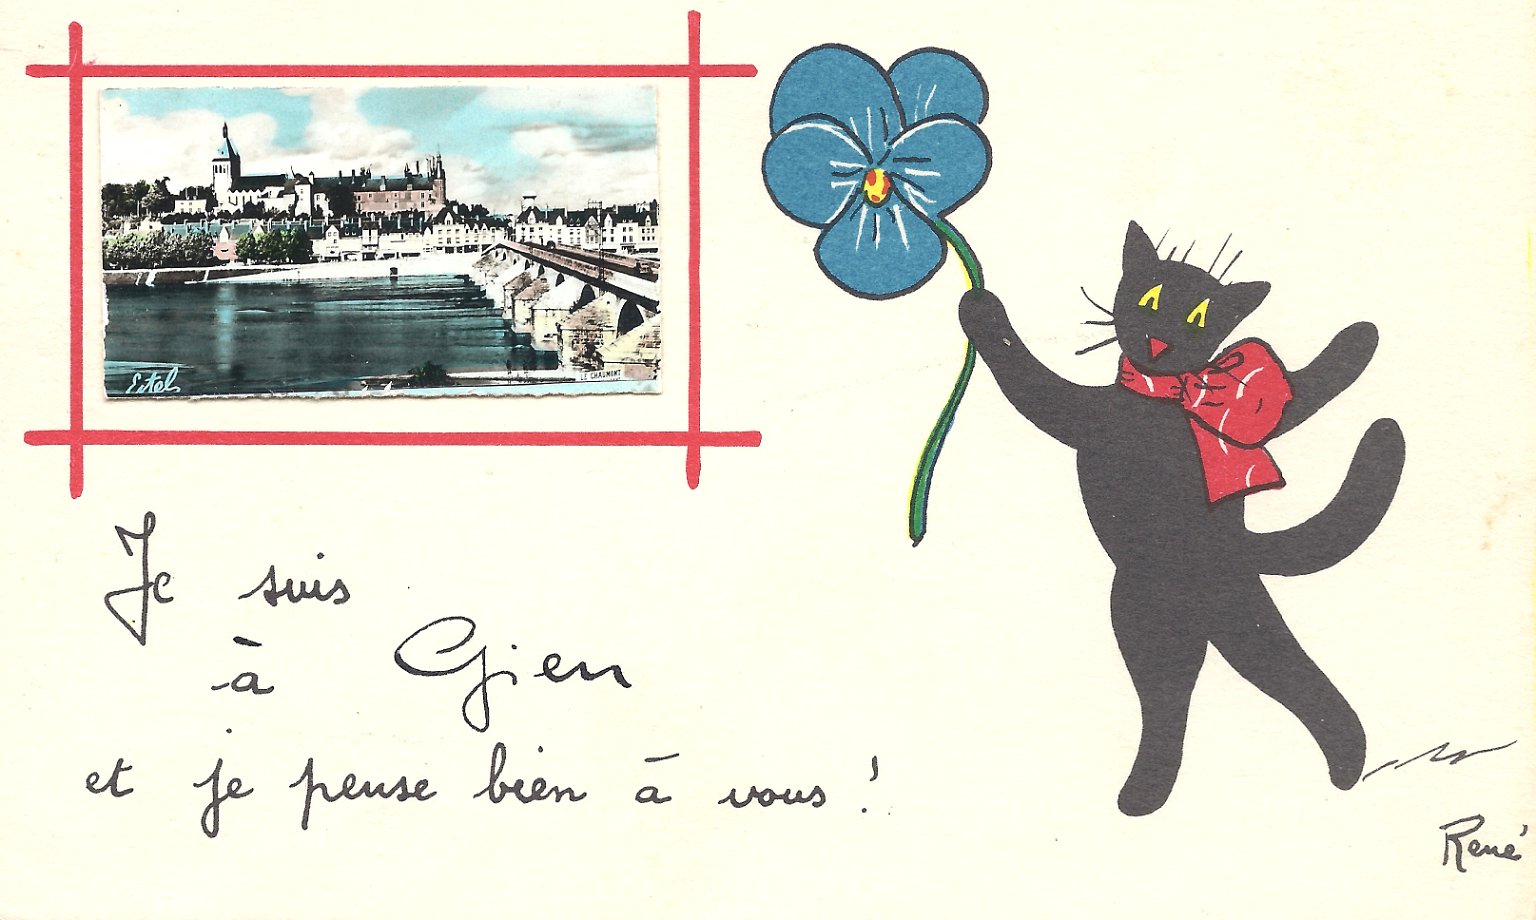 Estel
LE CHAUMONT
Je suis
à Gien
et je pense bien à vous !
René